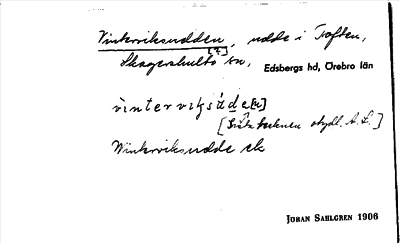 Vinterviksudden, udde i Toften,
[4]
Skagershults sn, Edsbergs hd, Örebro län
vìntervi̇ksùde[n]
[Sista tecknen otydl. A. L.]
Winterviksudde ek
JÖRAN SAHLGREN 1906